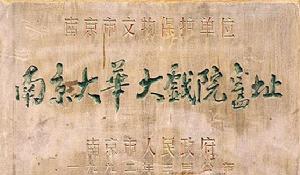 南京市文物保护单位
南京大华大戏院旧址
南京市人民政府
一九九二年